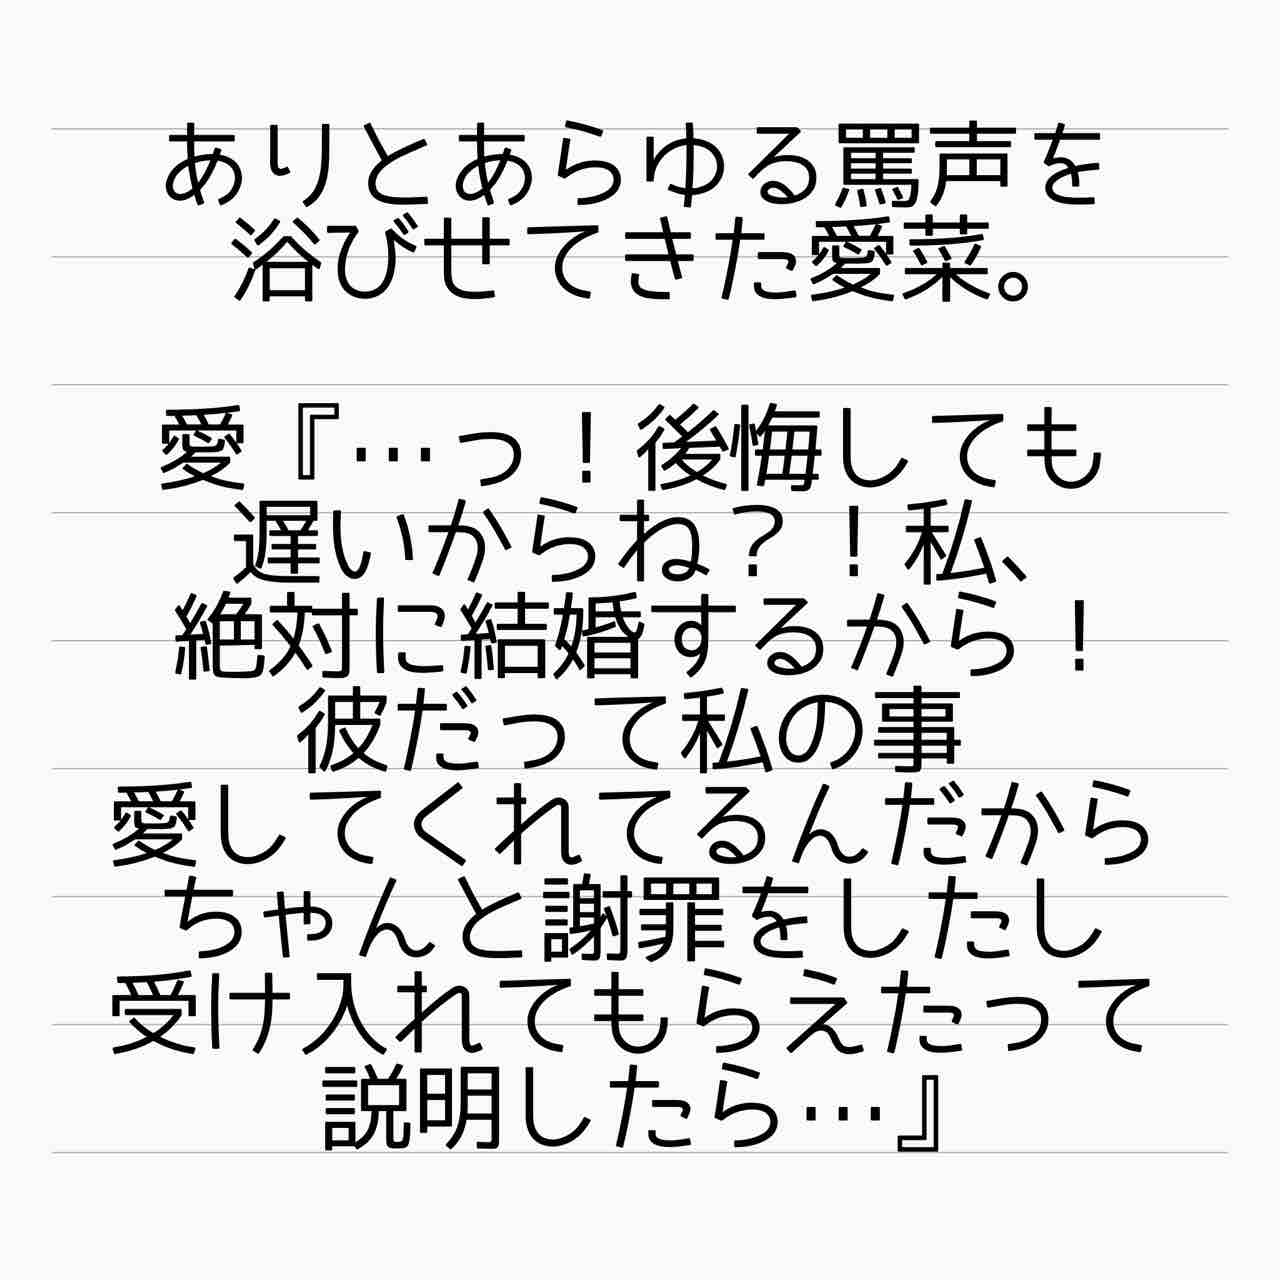 ありとあらゆる罵声を
浴びせてきた愛菜。
愛『…っ！後悔しても
遅いからね？！私、
絶対に結婚するから！
彼だって私の事
愛してくれてるんだから
ちゃんと謝罪をしたし
受け入れてもらえたって
説明したら…』